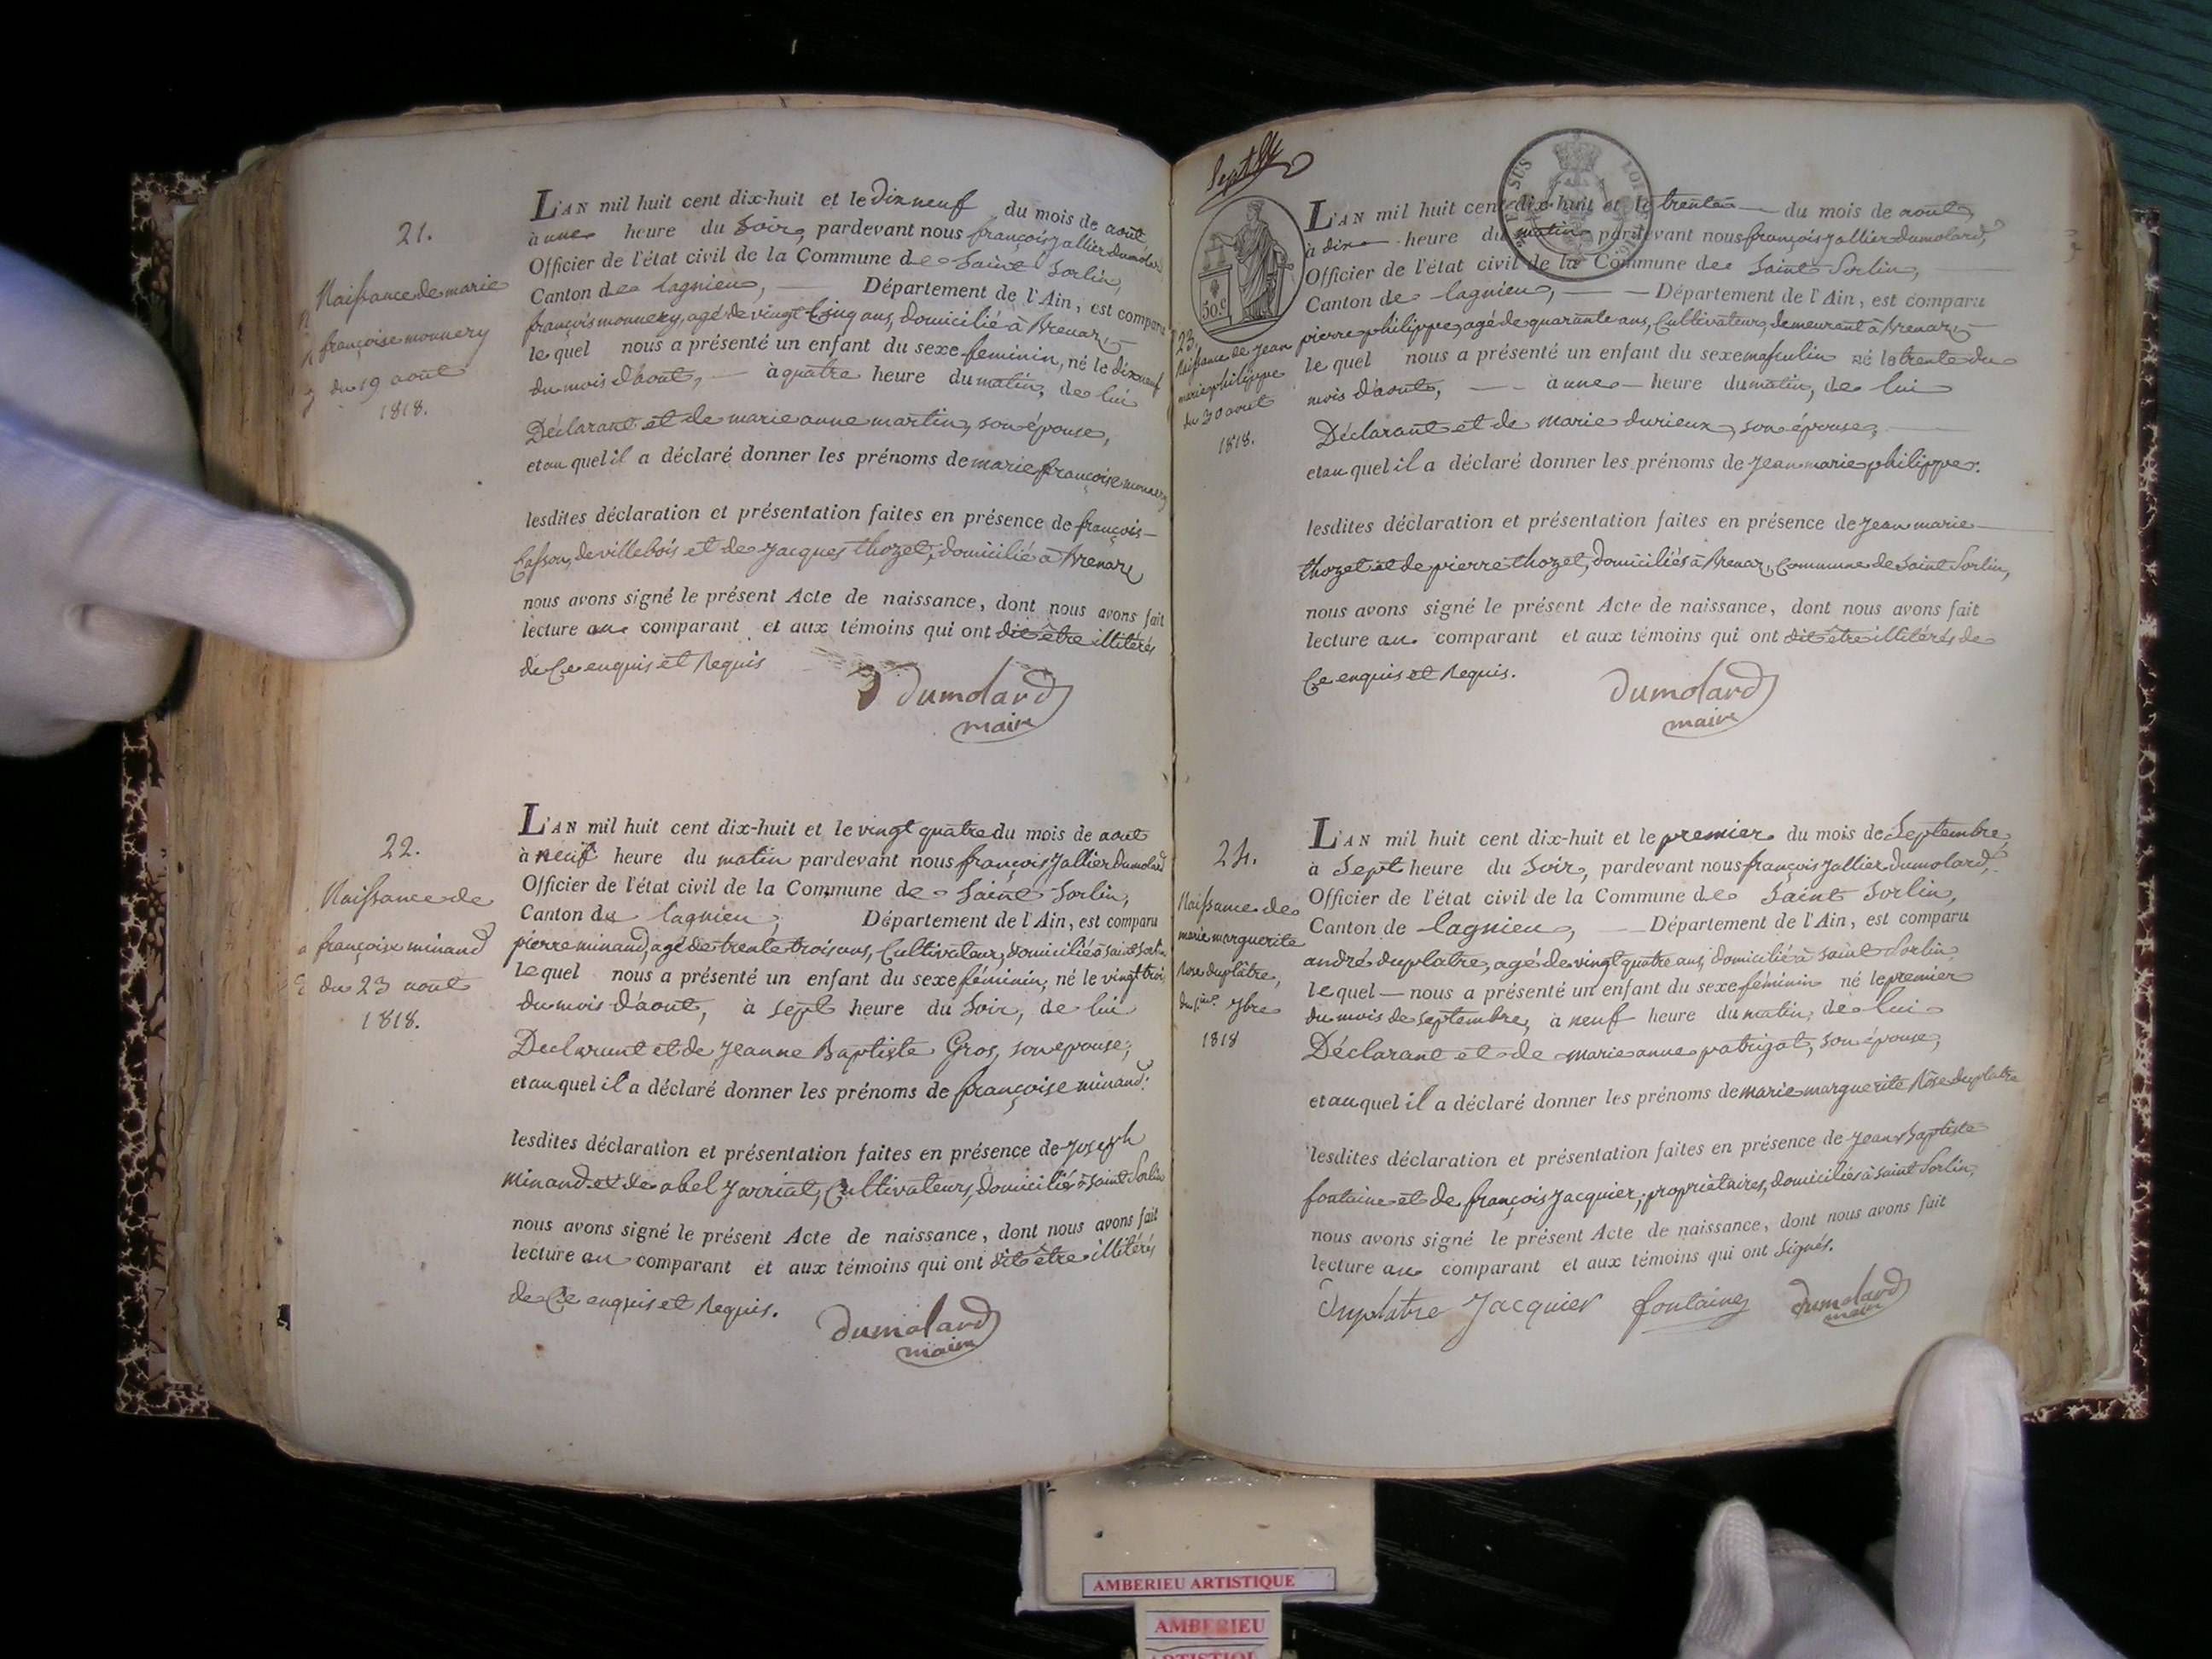 21.
Naissance de marie
françoise monnery
du 19 aout
1818.
L'AN mil huit cent dix-huit et le dix neuf du mois de aout
à une heure du Soir, pardevant nous françois Jallier Dumolard
Officier de l'état civil de la Commune de Saint Sorlin,
Canton de Lagnieu, Département de l'Ain, est comparu
françois monnery, agé de vingt Cinq ans, domicilié à Brenaz,
le quel nous a présenté un enfant du sexe feminin, né le dix neuf
du mois d'aout, à quatre heure du matin, de lui
Déclarant et de marie anne martin, son épouse,
et au quel il a déclaré donner les prénoms de marie françoise monnery
lesdites déclaration et présentation faites en présence de françois
Casson, de villebois et de Jacques thozet, domicilié à Brenaz
nous avons signé le présent Acte de naissance, dont nous avons fait
lecture au comparant et aux témoins qui ont dit être illitérés
de Ce enquis et Requis
Dumolard
maire
22.
Naissance de
françoise minand
du 23 aout
1818.
L'AN mil huit cent dix-huit et le vingt quatre du mois de aout
à neuf heure du matin pardevant nous françois Jallier Dumolard
Officier de l'état civil de la Commune de Saint Sorlin,
Canton du Lagnieu, Département de l'Ain, est comparu
pierre minand, agé de trente trois ans, Cultivateur, domicilié à Saint Sorlin
le quel nous a présenté un enfant du sexe féminin, né le vingt trois
du mois d'aout, à sept heure du Soir, de lui
Declarant et de Jeanne Baptiste Gros, son epouse;
et au quel il a déclaré donner les prénoms de françoise minand.
lesdites déclaration et présentation faites en présence de Joseph
Minand et de abel Jarriat, Cultivateurs, domiciliés à Saint Sorlin
nous avons signé le présent Acte de naissance, dont nous avons fait
lecture au comparant et aux témoins qui ont dit être illitérés
de Ce enquis et Requis.
Dumolard
maire
50.c
23.
Naissance de Jean
marie philippe
du 30 aout
1818.
L'AN mil huit cent dix-huit et le trente du mois de aout,
à dix heure du matin pardevant nous françois Jallier Dumolard,
Officier de l'état civil de la Commune de Saint Sorlin,
Canton de Lagnieu, Département de l'Ain, est comparu
pierre philippe, agé de quarante ans, Cultivateur, demeurant à Brenaz,
le quel nous a présenté un enfant du sexe masculin né le trente du
mois d'aout, à une heure du matin, de lui
Déclarant et de marie durieux, son épouse;
et au quel il a déclaré donner les prénoms de Jean marie philippe.
lesdites déclaration et présentation faites en présence de Jean marie
thozet et de pierre thozet, domiciliés à Brenaz, Commune de Saint Sorlin,
nous avons signé le présent Acte de naissance, dont nous avons fait
lecture au comparant et aux témoins qui ont dit être illitérés de
Ce enquis et Requis.
Dumolard
maire
24.
Naissance de
marie marguerite
Rose duplâtre,
du 1er 7bre
1818
L'AN mil huit cent dix-huit et le premier du mois de Septembre,
à Sept heure du Soir, pardevant nous françois Jallier Dumolard,
Officier de l'état civil de la Commune de Saint Sorlin,
Canton de Lagnieu, Département de l'Ain, est comparu
andré duplatre, agé de vingt quatre ans, domicilié à Saint Sorlin,
le quel nous a présenté un enfant du sexe féminin né le premier
du mois de septembre, à neuf heure du matin, de lui
Déclarant et de marie anne patrigot, son épouse,
et au quel il a déclaré donner les prénoms de marie marguerite Rose duplatre
lesdites déclaration et présentation faites en présence de Jean Baptiste
fontaine et de françois Jacquier, propriétaires, domiciliés à Saint Sorlin,
nous avons signé le présent Acte de naissance, dont nous avons fait
lecture au comparant et aux témoins qui ont Signés.
Duplatre Jacquier fontaine Dumolard
maire
AMBERIEU ARTISTIQUE
AMBERIEU
ARTISTIQUE